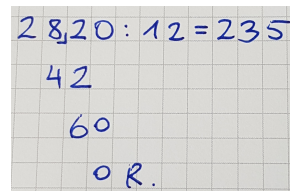 28,20:12=235
42
60
0 R.